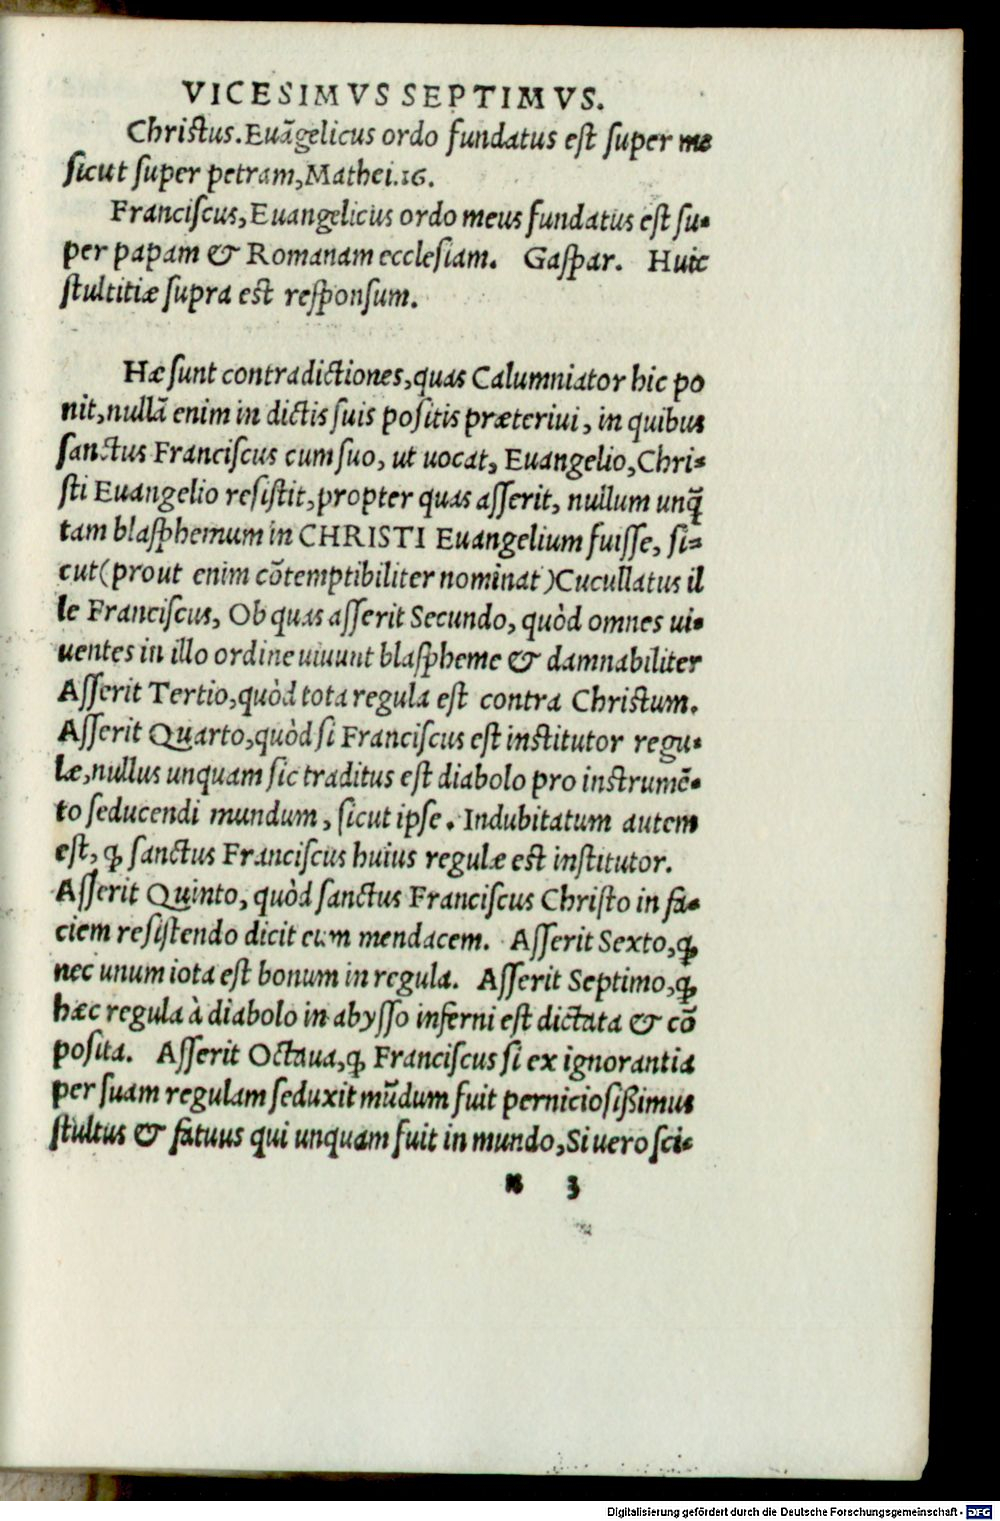 VICESIMVS SEPTIMVS.
Christus. Euãgelicus ordo fundatus est super me
sicut super petram, Mathei.16.
Franciscus, Euangelicus ordo meus fundatus est su-
per papam & Romanam ecclesiam. Gaspar. Huic
stultitiæ supra est responsum.
Hæ sunt contradictiones, quas Calumniator hic po
nit, nullã enim in dictis suis positis præteriui, in quibus
sanctus Franciscus cum suo, ut uocat, Euangelio, Chri-
sti Euangelio resistit, propter quas asserit, nullum unq̃
tam blasphemum in CHRISTI Euangelium fuisse, si-
cut (prout enim cõtemptibiliter nominat) Cucullatus il
le Franciscus, Ob quas asserit Secundo, quòd omnes ui-
uentes in illo ordine uiuunt blaspheme & damnabiliter
Asserit Tertio, quòd tota regula est contra Christum.
Asserit Quarto, quòd si Franciscus est institutor regu-
læ, nullus unquam sic traditus est diabolo pro instrumẽ-
to seducendi mundum, sicut ipse. Indubitatum autem
est, ꝙ sanctus Franciscus huius regulæ est institutor.
Asserit Quinto, quòd sanctus Franciscus Christo in fa-
ciem resistendo dicit eum mendacem. Asserit Sexto, ꝙ
nec unum iota est bonum in regula. Asserit Septimo, ꝙ
hæc regula à diabolo in abysso inferni est dictata & cõ
posita. Asserit Octaua, ꝙ Franciscus si ex ignorantia
per suam regulam seduxit mũdum fuit perniciosißimus
stultus & fatuus qui unquam fuit in mundo, Si uero sci-
N 3
Digitalisierung gefördert durch die Deutsche Forschungsgemeinschaft - DFG